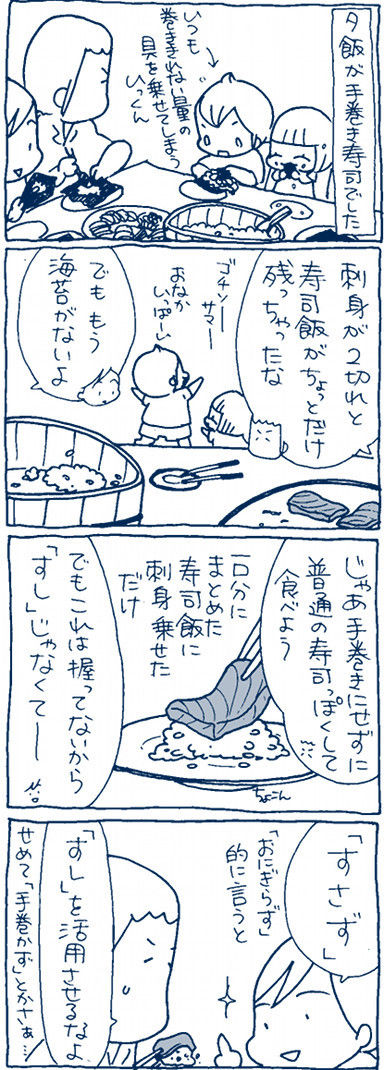 夕飯が手巻き寿司でした
いつも
巻ききれない量の
具を乗せてしまう
ひっくん
刺身が2切れと
寿司飯がちょっとだけ
残っちゃったな
ゴチソー
サマー
おなか
いぱーい
でももう
海苔がないよ
じゃあ手巻きにせずに
普通の寿司っぽくして
食べよう
一口分に
まとめた
寿司飯に
刺身乗せた
だけ
ちょこん
でもこれは握ってないから
「すし」じゃなくてー
「すさず」
「おにぎらず」
的に言うと
「すし」を活用させるなよ
せめて「手巻かず」とかさぁ…